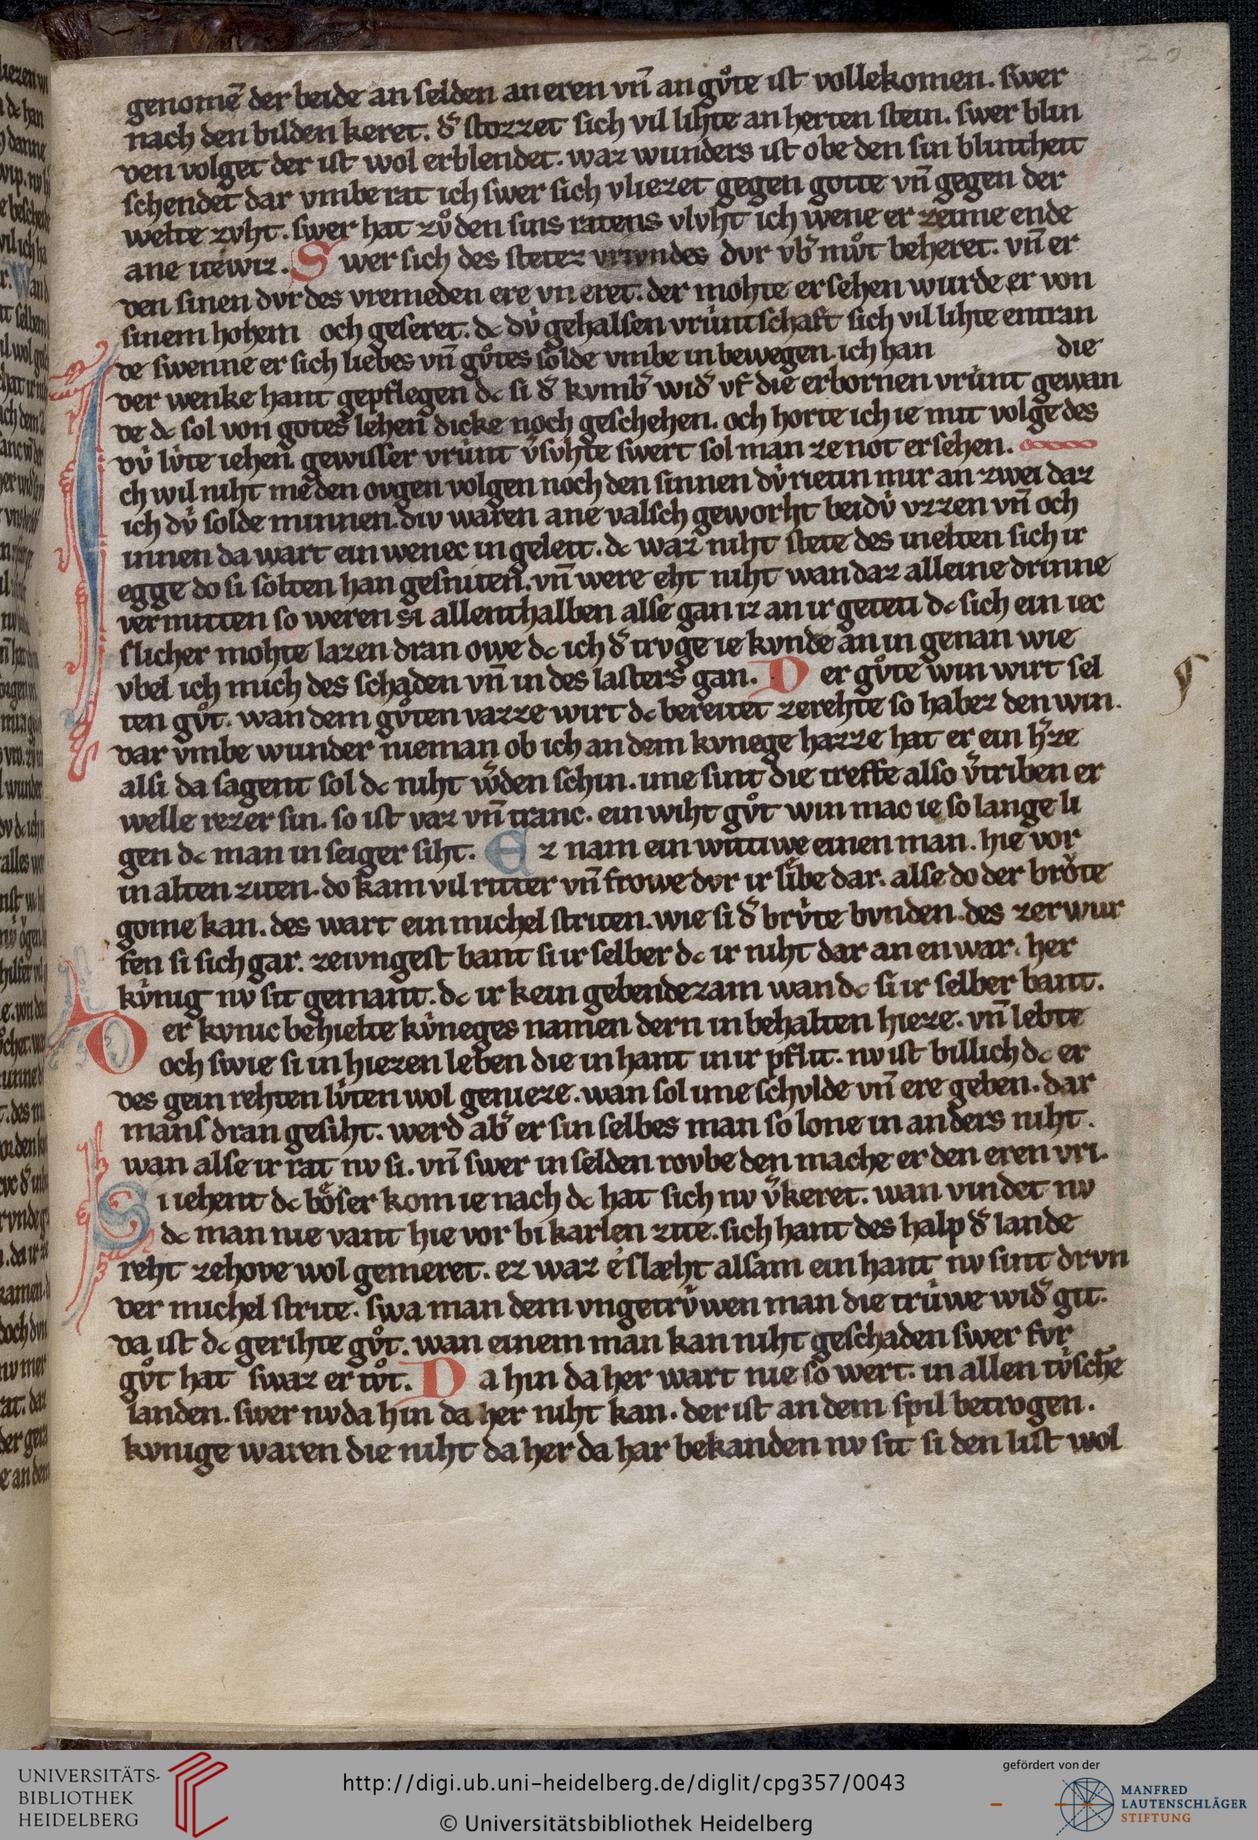 20
genomē der beide an selden an eren vn̄ an gůte ist vollekomen. swer
nach den bilden keret. d͛ stozzet sich vil lihte an herten stein. swer blin
den volget der ist wol erblendet. waz wunders ist obe den sin blintheit
schendet dar vmbe rat ich swer sich vliezet gegen gotte vn̄ gegen der
welte zvht. swer hat zů den sins ratens vlvht ich wene er zeime ende
ane itewiz. S wer sich des stetez vrivndes dvr vb͛ můt beheret. vn̄ er
den sinen dvr des vremeden ere vn eret. der mohte ersehen wurde er von
sinem hohern och geseret. dc dv́ gehalsen vrúntschaft sich vil lihte entran
de swenne er sich liebes vn̄ gůtes sǒlde vmbe in bewegen. ich han die
der wenke hant gepflegen dc si d͛ kvmb͛ wid͛ vf die erbornen vrúnt gewan
de dc sol von gotes lehen dicke noch geschehen. och horte ich ie mit volge des
dv́ lv́te iehen. gewisser vrúnt v͛svhte swert sol man ze not ersehen.
I ch wil niht me den ovgen volgen noch den sinnen dv́ rietin mir an zwei daz
ich dv́ solde minnen. div waren ane valsch geworht beidv́ vzzen vn̄ och
innen da wart ein wenec in geleit. dc waz niht stete des inelten sich ir
egge do si solten han gesniten. vn̄ were eht niht wan daz alleine drinne
vermitten so weren si allenthalben alse gan iz an ir geteti dc sich ein iec
slicher mohte lazen dran owe dc ich d͛ trvge ie kvnde an in genan wie
vbel ich mich des schaden vn̄ in des lasters gan. D er gůte win wirt sel
ten gůt. wan dem gůten vazze wirt dc bereitet zerehte so habez den win.
dar vmbe wunder nieman ob ich an dem kvnege hazze hat er ein h͛ze
alsi da sagent sol dc niht w͛den schin. ime sint die treffe also v͛triben er
welle rezer sin. so ist vaz vn̄ tranc. ein wiht gůt win mac ie so lange li
gen dc man in seiger siht. E z nam ein wittiwe einen man. hie vor
in alten ziten. do kam vil ritter vn̄ frowe dvr ir libe dar. alse do der brv́te
gome kan. des wart ein michel striten. wie si d͛ brv́te bvnden. des zerwur
fen si sich gar. zeivngest bant si ir selber dc ir niht dar an enwar. her
kv́nig nv sit gemant. dc ir kein gebende zam wan dc si ir selber bant.
D er kvnic behielte kv́neges namen dern in behalten hieze. vn̄ lebte
och swie si in hiezen leben die in hant in ir pflit. nv ist billich dc er
des gein rehten lv́ten wol genieze. wan sol ime schvlde vn̄ ere geben. dar
mans dran gesiht. werd ab͛ er sin selbes man so lone in anders niht.
wan alse ir rat nv si. vn̄ swer in selden rovbe den mache er den eren vri.
S i iehent dc bǒser kom ie nach dc hat sich nv v͛keret. wan vindet nv
dc man nie vant hie vor bi karlen zite. sich hant des halp d͛ lande
reht zehove wol gemeret. ez waz e slæht alsam ein hant nv sint drvn
der michel strite. swa man dem vngetrv́wen man die trúwe wid͛ git.
da ist dc gerihte gůt. wan einem man kan niht geschaden swer fvr
gůt hat swaz er tůt. D a hin da her wart nie so wert. in allen tv́schē
landen. swer nv da hin da her niht kan. der ist an dem spil betrogen.
kvnige waren die niht da her da har bekanden nv sit si den list wol
UNIVERSITÄTS-
BIBLIOTHEK
HEIDELBERG
http://digi.ub.uni-heidelberg.de/diglit/cpg357/0043
© Universitätsbibliothek Heidelberg
gefördert von der
MANFRED
LAUTENSCHLÄGER
STIFTUNG